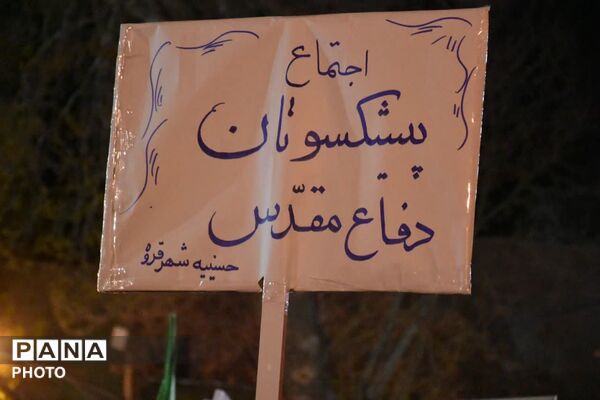 اجتماع
پیشکسوتان
دفاع مقدّس
حسینیه شهر قروه
PANA
PHOTO